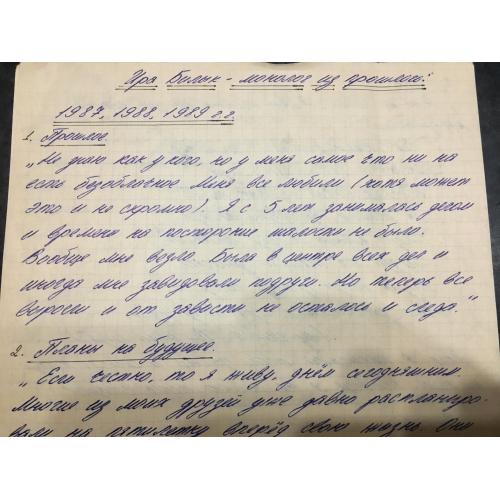 Ира Билык - монолог из прошлого:
1987, 1988, 1989 г.г.
1. Прошлое
„Не знаю как у кого, но у меня самое что ни на
есть безоблачное. Меня все любили (хотя может
это и не скромно). Я с 5 лет занималась делом
и времени на посторонние шалости не было.
Вообще мне везло. Была в центре всех дел и
иногда мне завидовали подруги. Но теперь все
выросли и от зависти не осталось и следа."
2. Планы на будущее.
„Если честно, то я живу, днём сегодняшним.
Многие из моих друзей уже давно распланиро-
вали на пятилетку вперёд свою жизнь. Они